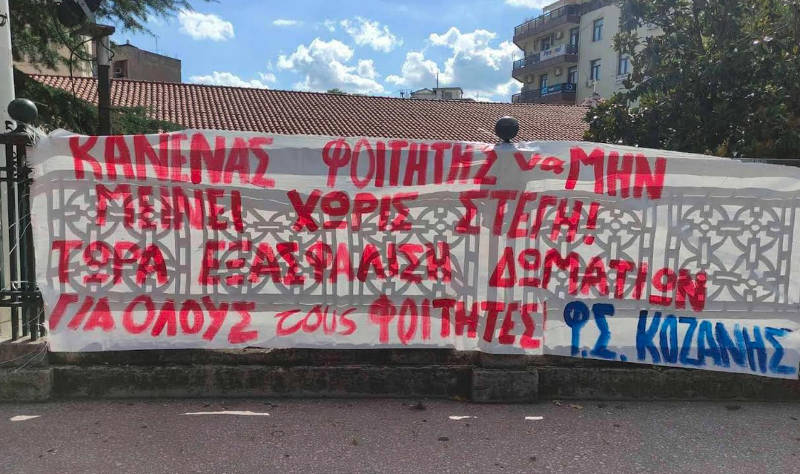 ΚΑΝΕΝΑΣ ΦΟΙΤΗΤΗΣ να ΜΗΝ
ΜΕΙΝΕΙ ΧΩΡΙΣ ΣΤΕΓΗ!
ΤΩΡΑ ΕΞΑΣΦΑΛΙΣΗ ΔΩΜΑΤΙΩΝ
ΓΙΑ ΟΛΟΥΣ τους ΦΟΙΤΗΤΕΣ!
Φ.Σ. ΚΟΖΑΝΗΣ